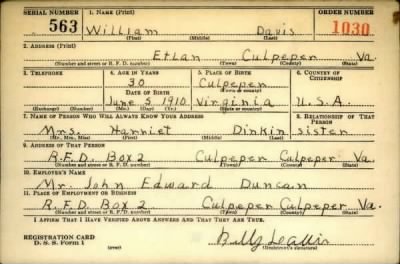 SERIAL NUMBER 1. NAME (Print) ORDER NUMBER
563 William Davis 1030
(First) (Middle) (Last)
2. ADDRESS (Print)
Etlan Culpeper Va.
(Number and street or R. F. D. number) (Town) (County) (State)
3. TELEPHONE 4. AGE IN YEARS 5. PLACE OF BIRTH 6. COUNTRY OF CITIZENSHIP
30 Culpeper
DATE OF BIRTH (Town or county)
June 5 1910 Virginia U.S.A.
(Exchange) (Number) (Mo.) (Day) (Yr.) (State or country)
7. NAME OF PERSON WHO WILL ALWAYS KNOW YOUR ADDRESS 8. RELATIONSHIP OF THAT PERSON
Mrs. Harriet Dinkin sister
(Mr., Mrs., Miss) (First) (Middle) (Last)
9. ADDRESS OF THAT PERSON
R.F.D. Box 2 Culpeper Culpeper Va.
(Number and street or R. F. D. number) (Town) (County) (State)
10. EMPLOYER'S NAME
Mr. John Edward Duncan
11. PLACE OF EMPLOYMENT OR BUSINESS
R.F.D. Box 2 Culpeper Culpeper Va.
(Number and street or R. F. D. number) (Town) (County) (State)
I AFFIRM THAT I HAVE VERIFIED ABOVE ANSWERS AND THAT THEY ARE TRUE.
REGISTRATION CARD
D. S. S. Form 1 (over) (Registrant's signature)